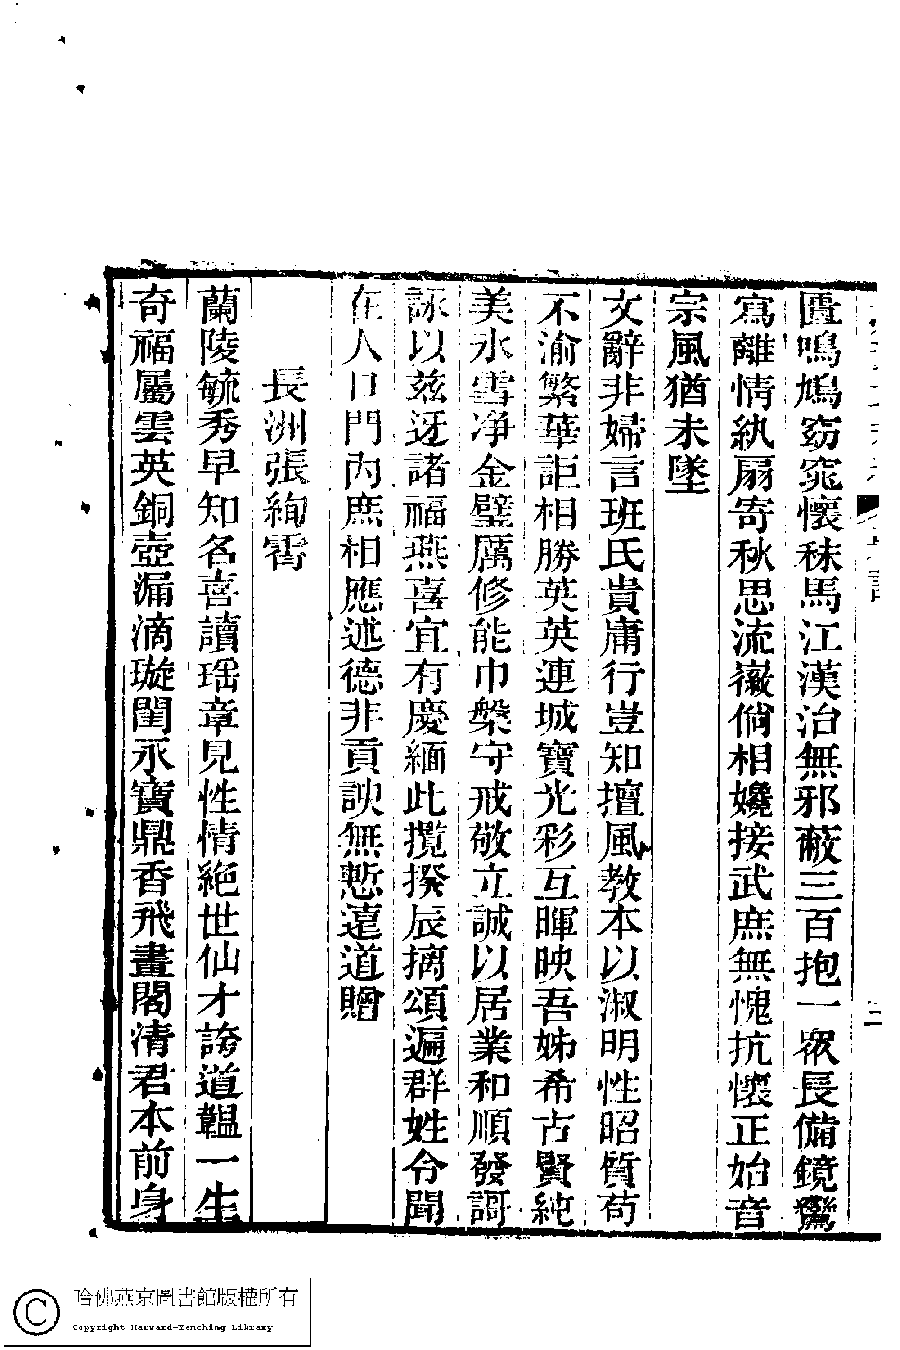 匱鳴鳩窈窕懷秣馬江漢治無邪蔽三百抱一衆長備鏡鸞
寫離情紈扇寄秋思流徽倘相嬓接武庶無愧抗懷正始音
宗風猶未墜
文辭非婦言班氏貴庸行豈知擅風教本以淑明性昭質苟
不渝繁華詎相勝英英連城寶光彩互暉映吾姊希古賢純
美氷雪净金璧厲修能巾槃守戒敬立誠以居業和順發謌
詠以兹迓諸福燕喜宜有慶緬此攬揆辰摛頌遍群姓令聞
在人口門內庶相應述德非貢諛無慙遠道贈
長洲張絢霄
蘭陵毓秀早知名喜讀瑶章見性情絶世仙才誇道韞一生
奇福屬雲英銅壺漏滴璇閨永寶鼎香飛畫閣清君本前身
哈佛燕京圖書館版權所有
Copyright Harvard-Yenching Library